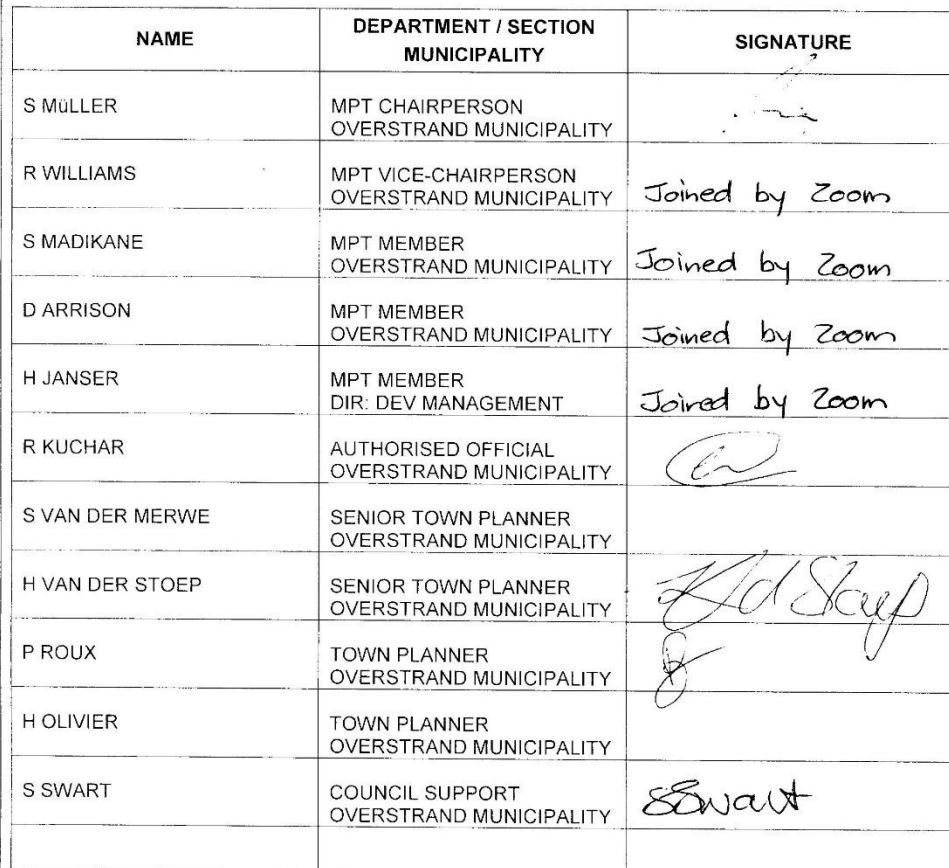 NAME
DEPARTMENT / SECTION
MUNICIPALITY
SIGNATURE
S MüLLER
MPT CHAIRPERSON
OVERSTRAND MUNICIPALITY
R WILLIAMS
MPT VICE-CHAIRPERSON
OVERSTRAND MUNICIPALITY
Joined by Zoom
S MADIKANE
MPT MEMBER
OVERSTRAND MUNICIPALITY
Joined by Zoom
D ARRISON
MPT MEMBER
OVERSTRAND MUNICIPALITY
Joined by Zoom
H JANSER
MPT MEMBER
DIR: DEV MANAGEMENT
Joined by Zoom
R KUCHAR
AUTHORISED OFFICIAL
OVERSTRAND MUNICIPALITY
S VAN DER MERWE
SENIOR TOWN PLANNER
OVERSTRAND MUNICIPALITY
H VAN DER STOEP
SENIOR TOWN PLANNER
OVERSTRAND MUNICIPALITY
P ROUX
TOWN PLANNER
OVERSTRAND MUNICIPALITY
H OLIVIER
TOWN PLANNER
OVERSTRAND MUNICIPALITY
S SWART
COUNCIL SUPPORT
OVERSTRAND MUNICIPALITY
SSwart